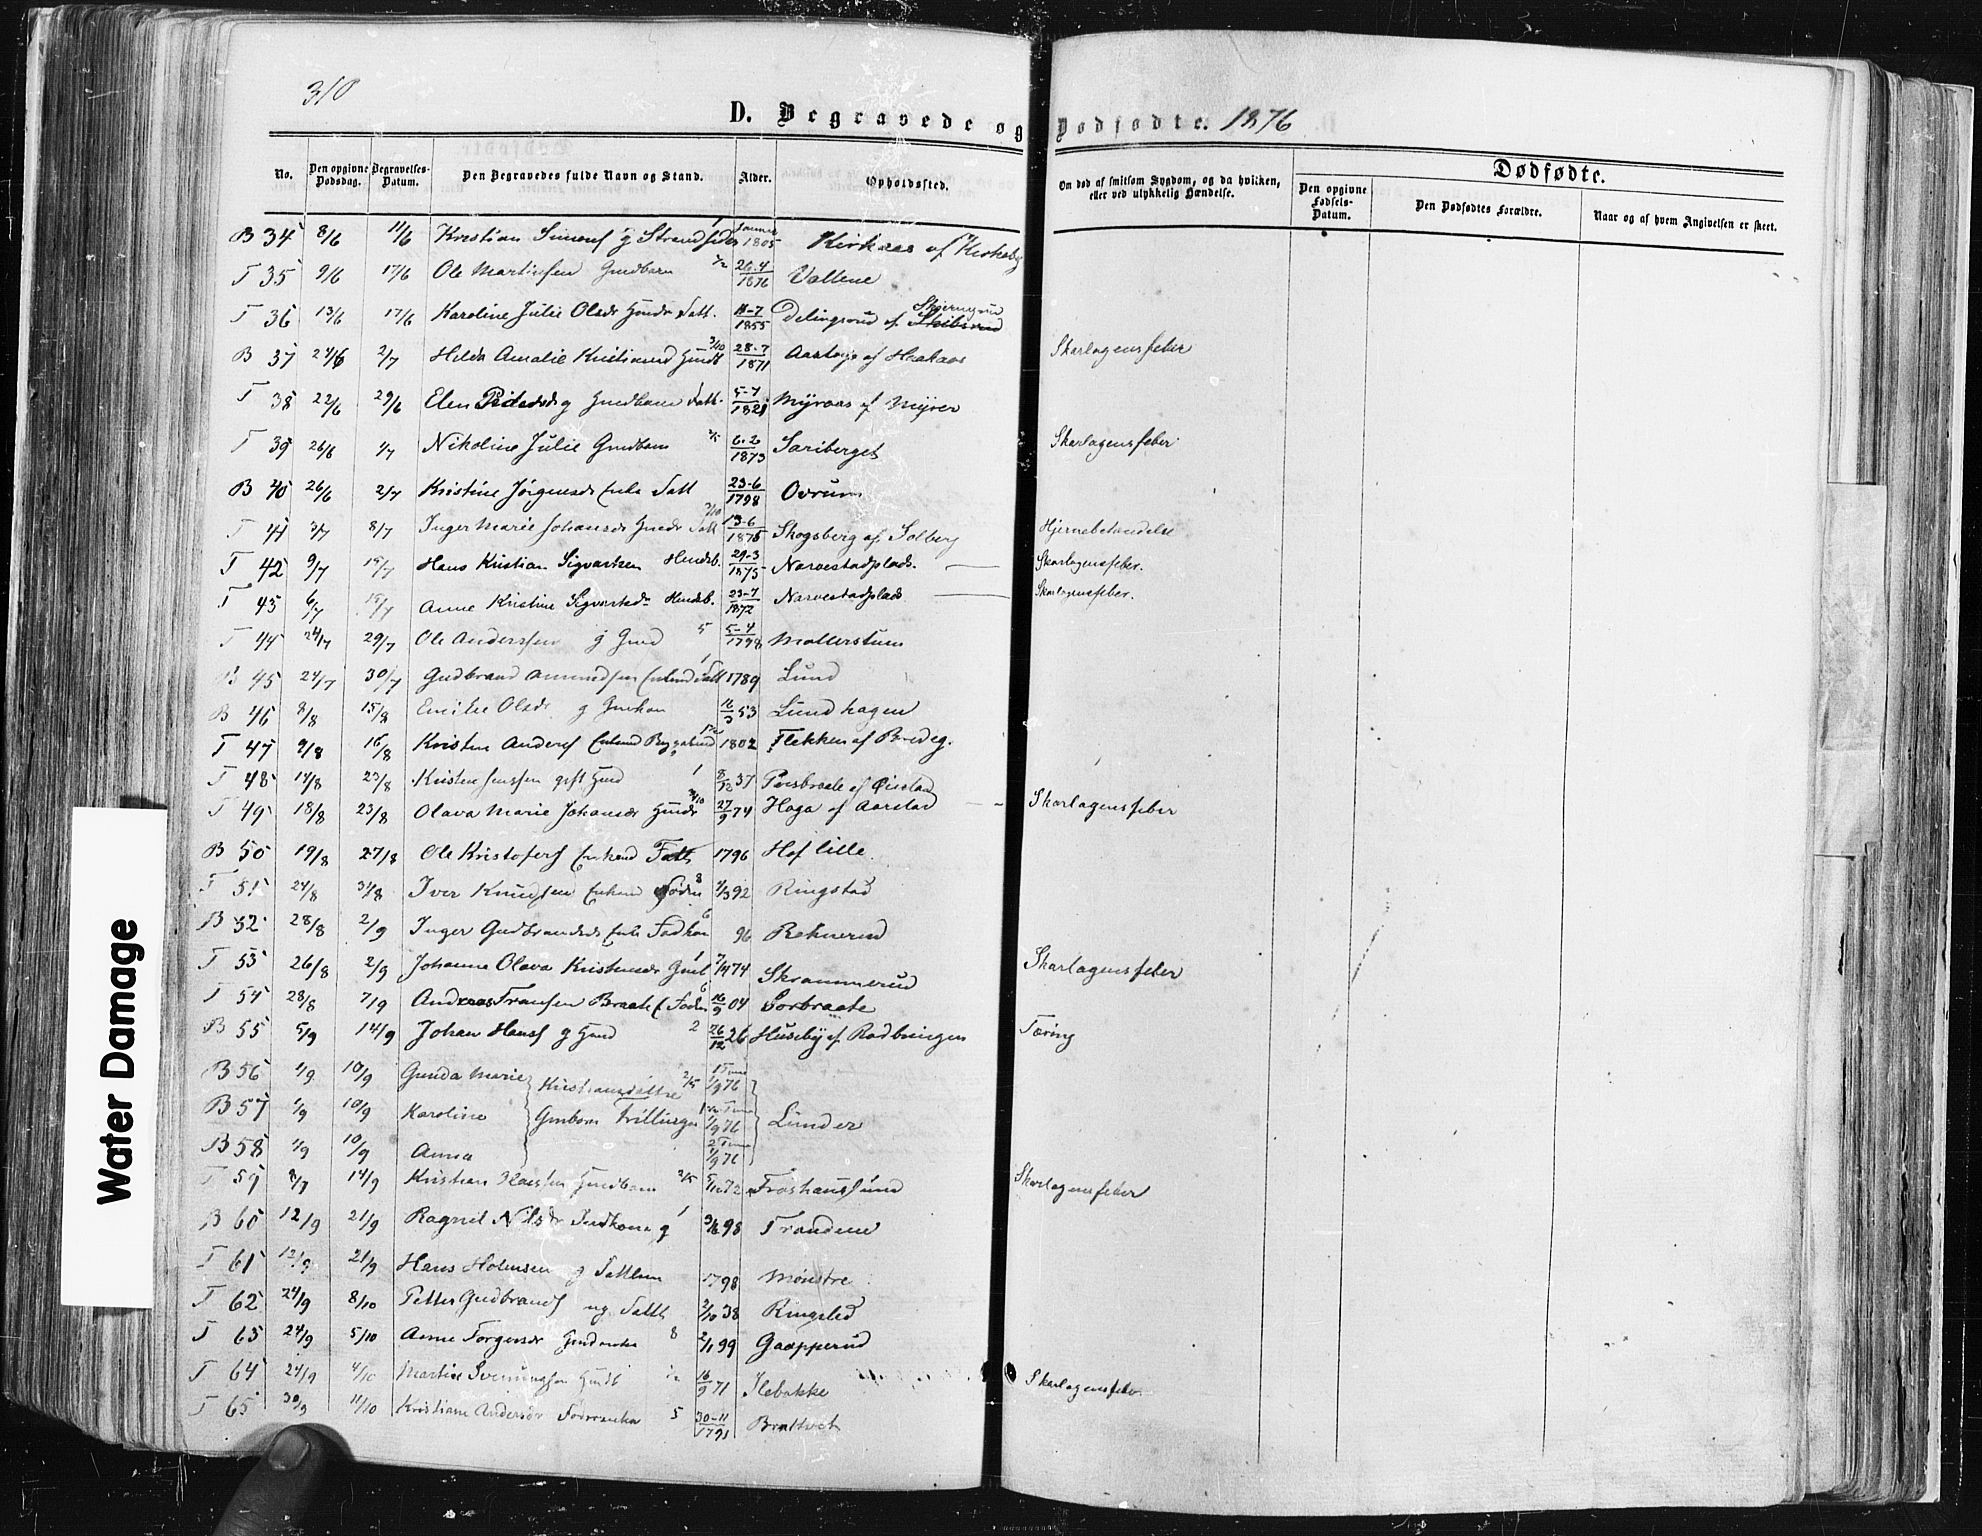 310
D. Begravede og Dødfødte. 1876
No. Den opgivne Dødsdag. Begravelses-Datum. Den Begravedes fulde Navn og Stand. Alder. Opholdssted. Om død af smitsom Sygdom, og da hvilken, eller ved ulykkelig Hændelse. Dødfødte.
Den opgivne Fødsels-Datum. Den Dødfødtes Forældre. Naar og af hvem Angivelsen er skeet.
B 34 8/6 11/6 Kristian Simens g 1805 Kirkaas af Kirkeby
T 35 9/6 17/6 Ole Martinsen Gmdbarn 26-4 1876 Vallene
T 36 13/6 17/6 Karoline Julie Olsdr Gmdr Datt. 11-7 1855 Delingsrud af Skibsrud
B 37 24/6 2/7 Hilda Amalie Kristiansd Gmdt 28-7 1871 af Haakaas Skarlagensfeber
T 38 22/6 29/6 Elen g Gmdkone Fatt. 5-7 1821 Myraas af Myrer
T 39 26/6 1/7 Nikoline Julie Gmdbarn 6-2 1873 Sariberget Skarlagensfeber
B 40 26/6 2/7 Kristine Jörgensdr Enke Fatt 23-6 1798 Ovrum
T 41 3/7 8/7 Inger Marie Johansdr Gmdr Datt 13-6 1875 Skogsberg af Solberg Hjernebetændelse
T 42 9/7 15/7 Hans Kristian Sigvartsen Hmdsb. 29-3 1875 Narvestadplads. Skarlagensfeber.
T 43 6/7 15/7 Anne Kristine Sigvartsdr Hmdsb. 23-7 1872 Narvestadplads Skarlagensfeber.
T 44 24/7 29/7 Ole Anderssen g Gmd 5 5-4 1798 Mollerstuen
B 45 24/7 30/7 Gudbrand Amundsen Enkmd Fatt 1789 Lund
B 46 8/8 15/8 Emilie Olsdr g Gmkon 16/3 53 Lundhagen
T 47 9/8 16/8 Kristen Anders Enkmd 1802 Flekken af Bredeg.
T 48 14/8 23/8 Kristen Jenssen gift Gmd 1 8/12 37 Persbraate af Öistad
T 49 18/8 23/8 Olava Marie Johansdr Gmdr 27/9 74 Haga af Aarstad Skarlagensfeber
B 50 19/8 27/8 Ole Kristofers Enkmd Fatt 1796 Hof lille.
T 51 24/8 31/8 Iver Knudsen Enkm Föder 8 1/3 92 Ringstad
B 52 28/8 2/9 Inger Gudbrandsdr Enke Fodkon 6 96 Reknerud
T 53 26/8 2/9 Johanne Olava Kristensdr Gmb 1 7/1 74 Skrammerud Skarlagensfeber
T 54 28/8 7/9 Andreas Fransen Braate 6 16/9 04 Sorbraate
B 55 5/9 14/9 Johan Hans g Gmd 2 26/12 26 Huseby af Rodbningen Tæring
B 56 1/9 10/9 Gunda Marie Kristiansdöttre 2/5 1/9 76
B 57 1/9 10/9 Karoline Gmbarn trillinger 1/9 76 Lunder
B 58 1/9 10/9 Anna 1/9 76
T 59 14/9 Kristian Gmdbarn 2/5 72 Froshauslund Skarlagensfeber
B 60 12/9 21/9 Ragnil Nilsdr g 98 Trandene
T 61 12/9 21/9 Hans Holmsen g 1798 Mönstre
T 62 24/9 8/10 Petter Gudbrands ug Fatt 3/10 38 Ringsted
T 63 24/9 5/10 Anne Torgersdr Gmdenke 8 2/1 99 Gaapperud
T 64 24/9 4/10 Martin Svenningsen Gmdb 16/9 71 Ilebakke Skarlagensfeber
T 65 30/9 11/10 Kristiane Andersdr 5 30-11 1791 Brattvet
Water Damage